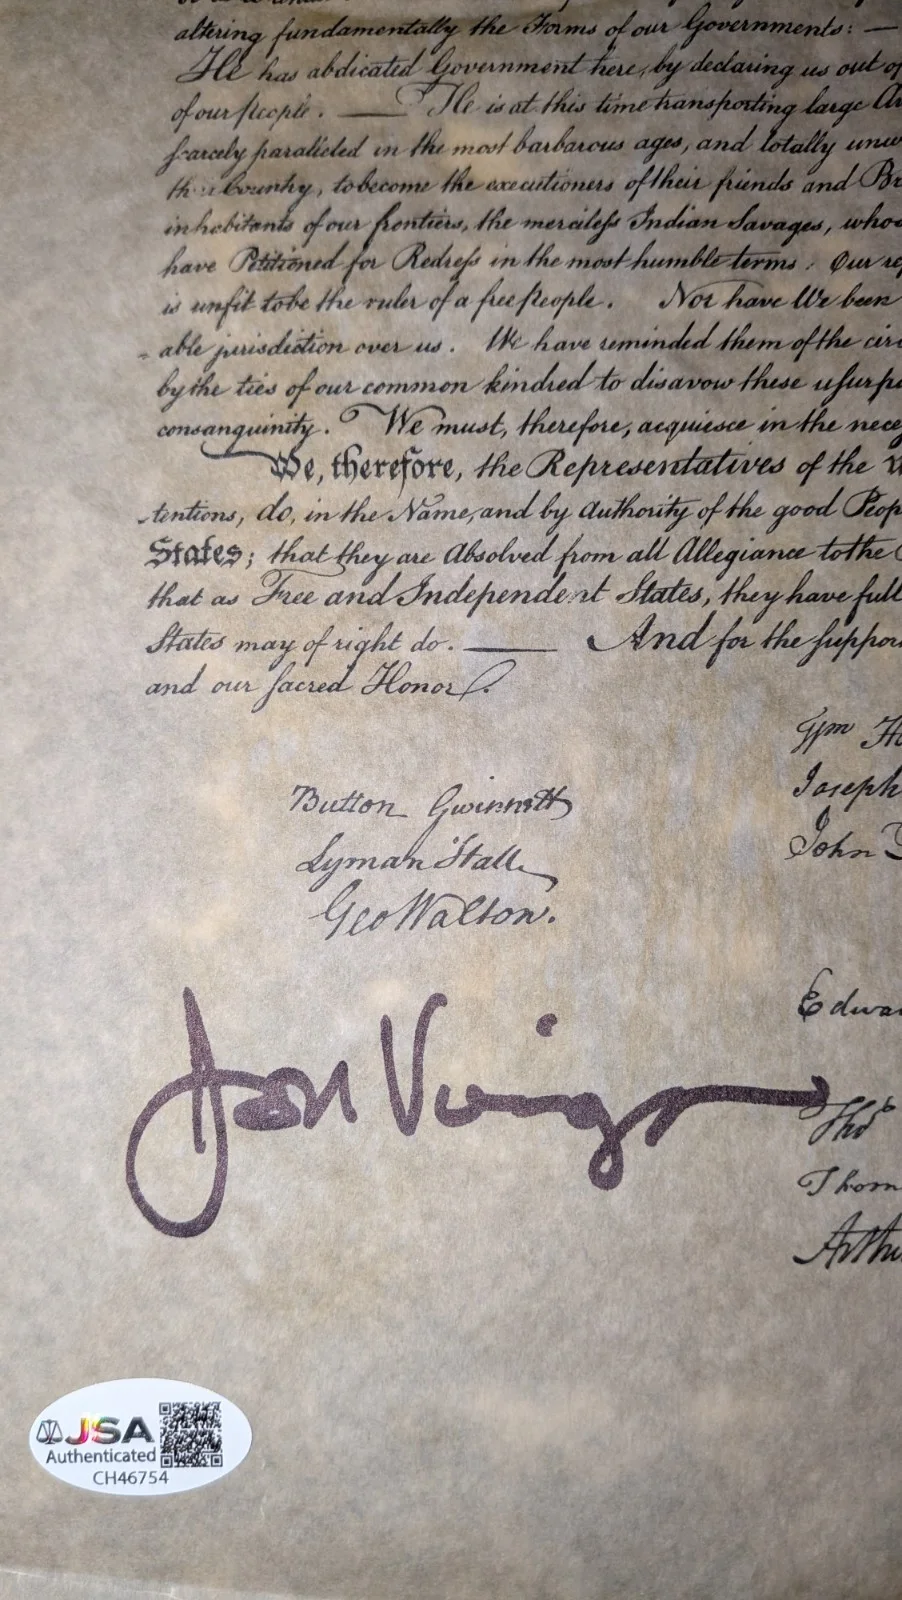 altering fundamentally the Forms of our Governments: —
He has abdicated Government here, by declaring us out of
of our people. — He is at this time transporting large Ar
scarcely paralleled in the most barbarous ages, and totally unw
their Country, to become the executioners of their friends and Br
inhabitants of our frontiers, the merciless Indian Savages, whos
have Petitioned for Redress in the most humble terms: Our rep
is unfit to be the ruler of a free people. Nor have We been
able jurisdiction over us. We have reminded them of the circ
by the ties of our common kindred to disavow these usurpa
consanguinity. We must, therefore, acquiesce in the nece
We, therefore, the Representatives of the
tentions, do, in the Name, and by Authority of the good Peop
States; that they are Absolved from all Allegiance to the
that as Free and Independent States, they have full
States may of right do. — And for the suppor
and our sacred Honor.
Wm Ho
Button Gwinnett
Joseph
Lyman Hall
John
Geo Walton.
Edwar
Jon Voight
Thos
Thom
Arthu
JSA
Authenticated
CH46754